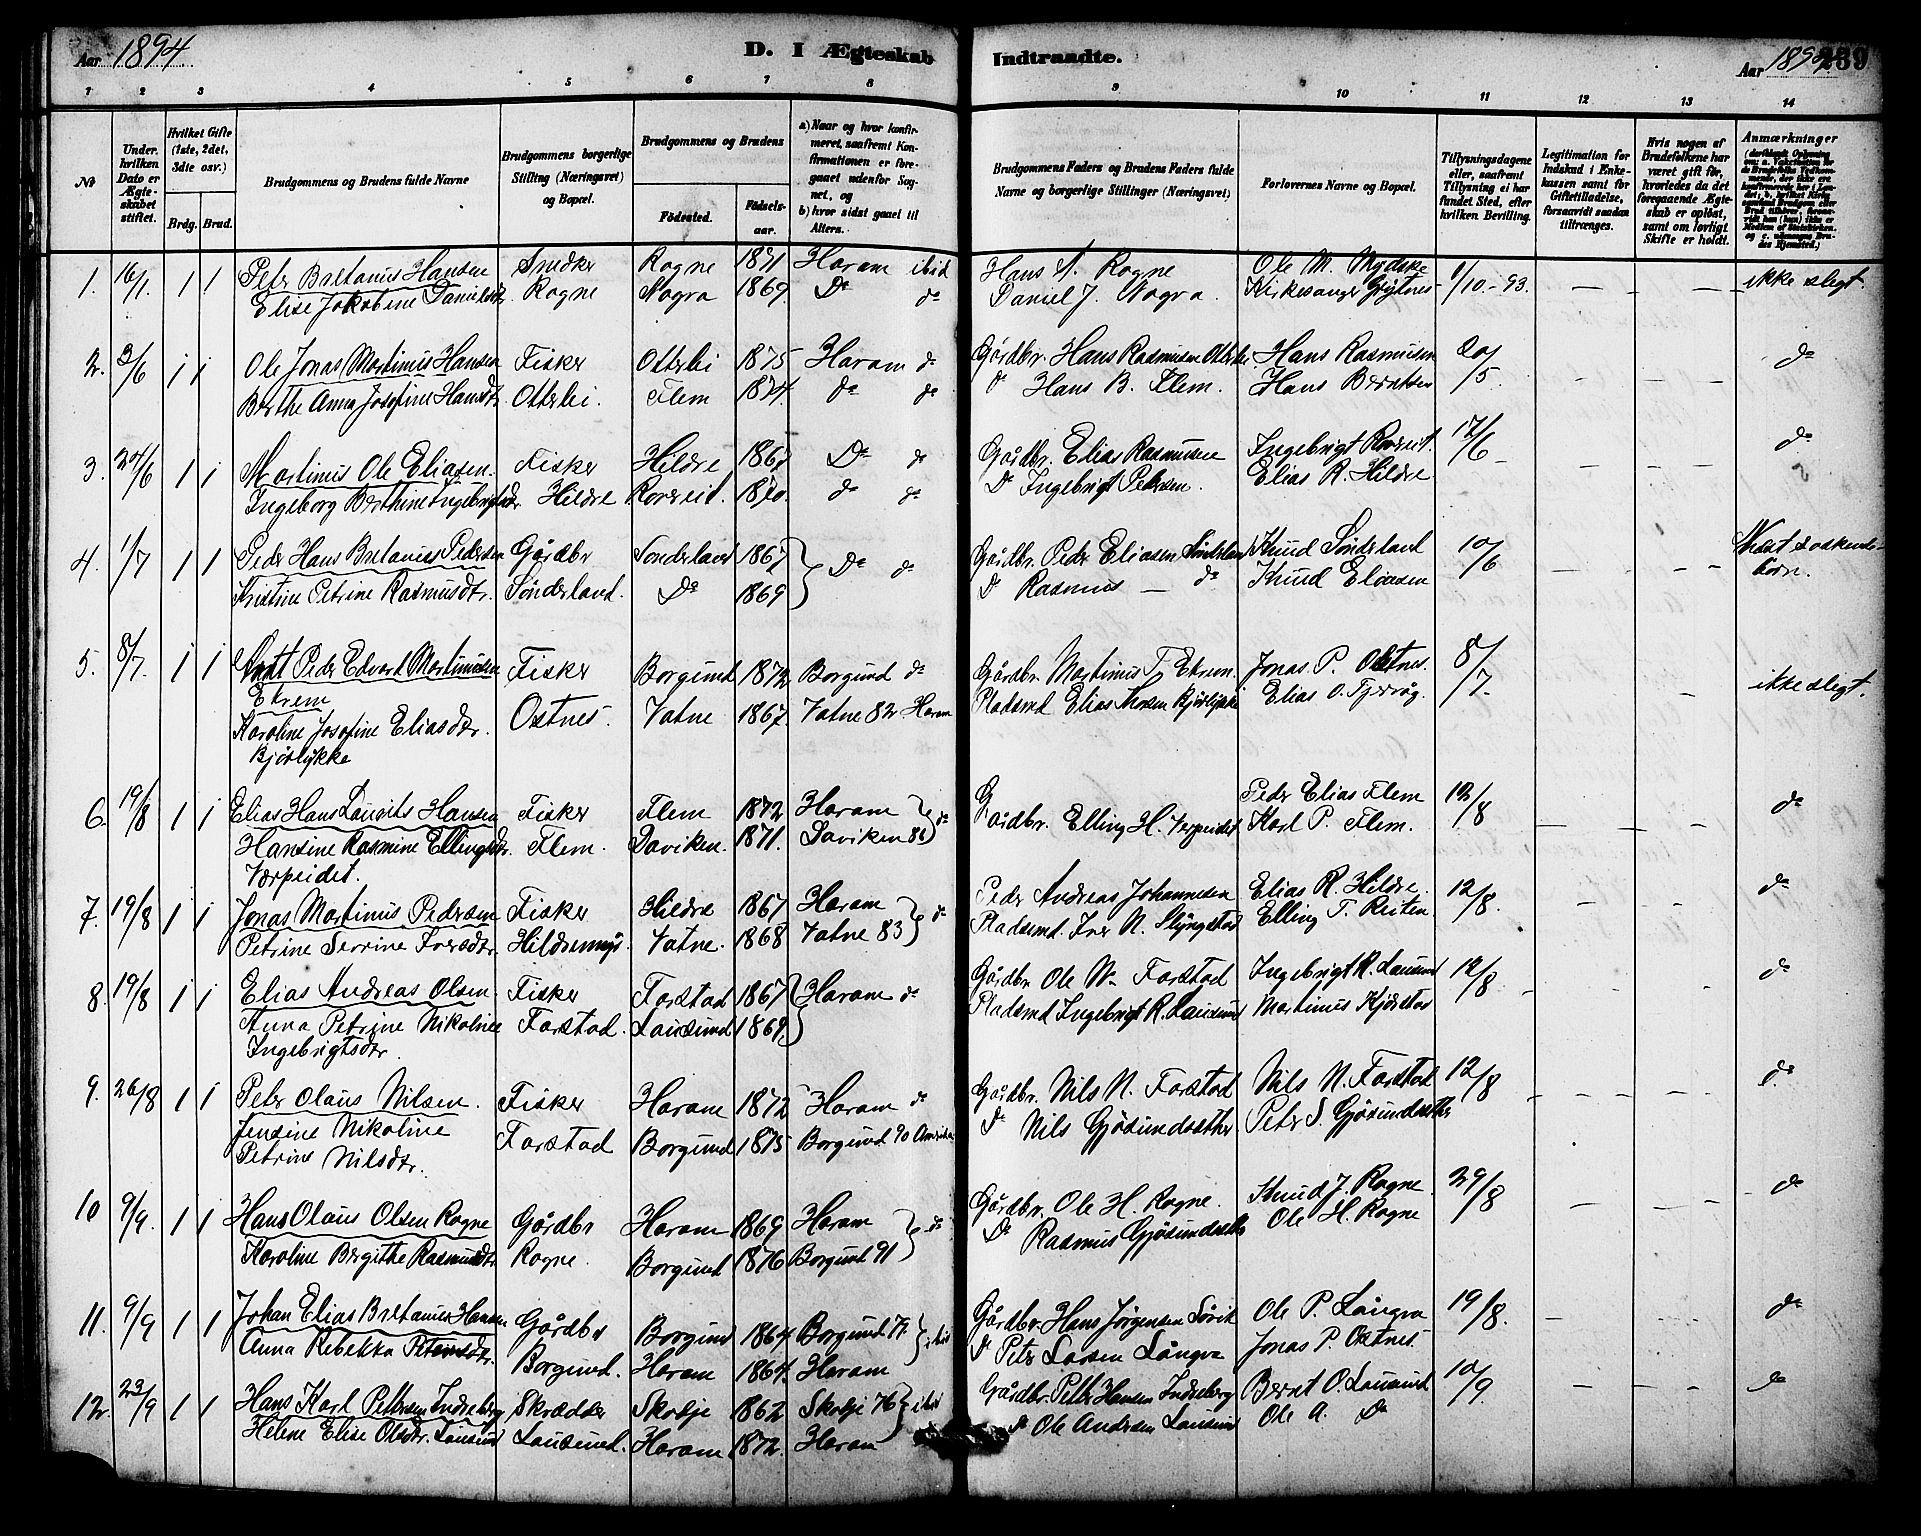 Aar 1894. D. I Ægteskab Indtraadte. Aar 1894 239
1 2 3 4 5 6 7 8 9 10 11 12 13 14
№
Under hvilken Dato er Ægteskabet stiftet.
Hvilket Gifte (1ste, 2det, 3die osv.)
Brdg. Brud.
Brudgommens og Brudens fulde Navne
Brudgommens borgerlige Stilling (Næringsvei) og Bopæl.
Brudgommens og Brudens
Fødested. Fødselsaar.
a) Naar og hvor konfirmeret, saafremt Konfirmationen er foregaaet udenfor Sognet, og
b) hvor sidst gaaet til Alters.
Brudgommens Faders og Brudens Faders fulde Navne og borgerlige Stillinger (Næringsvei)
Forlovernes Navne og Bopæl.
Tillysningsdagene eller, saafremt Tillysning ei har fundet Sted, efter hvilken Bevilling.
Legitimation for Indskud i Enkekassen samt for Giftetilladelse, forsaavidt saadan tiltrænges.
Hvis nogen af Brudefolkene har været gift før, hvorledes da det foregaaende Ægteskab er opløst, samt om lovligt Skifte er holdt.
Anmærkninger
1. 16/1. 1 1 Peter Bretanus Hansen Snedker Rogne 1871 Haram ibid Hans A. Rogne Ole M. Mydske 1/10 - 93. — — — ikke slegt
Elise Jakobine Danielsdtr. Rogne Nogva 1869. Do do Daniel J. Nogva. Kirkesanger Grytnes
2. 3/6 1 1 Ole Jonas Martinus Hansen Fisker Otterlei 1875 Haram do Gårdbr. Hans Rasmusen Otterlei Hans Rasmusen 20/5 — — — do
Berthe Anna Josefine Hansdtr. Otterlei. Flem 1874. do do do Hans B. Flem. Hans Berntsen
3. 24/6 1 1 Martinus Ole Eliasen. Fisker Hildre 1867 Do do Gårdbr. Elias Rasmusen Ingebrigt Rovreit. 17/6 — — — do
Ingeborg Berthine Ingebrigtsdtr. Hildre Rovreit. 1870. do do Do Ingebrigt Petersen. Elias R. Hildre
4. 1/7 1 1 Peder Hans Bretanus Pedersen Gårdbr Sønderland 1867 } Do do Gårdbr. Peder Eliasen Sønderland Knud Sønderland 10/6 — — — Næstsødskendebörn.
Kristine Petrine Rasmusdtr. Sønderland. Do 1869 Do Rasmus — do Knud Eliasen
5. 8/7. 1 1 Knut Peder Edvard Martinusen Fisker Borgund 1872 Borgund do Gårdbr. Martinus T. Ekrem. Jonas P. Ostnes. 8/7. — ikke slegt.
Ekrem
Karoline Josefine Eliasdtr. Ostnes. Vatne 1867. Vatne 82 Haram Pladsmd Elias Bjørlykke Elias O. Tjervåg.
Bjørlykke
6. 19/8 1 1 Elias Hans Laurits Hansen Fisker Flem 1872 Haram } do Peder Elias Flem 12/8 — — — do
Hansine Rasmine Ellingsdtr. Flem. Daviken. 1871. Daviken 86 Gårdbr. Elling H. Verpeidet Karl P. Flem.
Værpeidet.
7. 19/8 1 1 Jonas Martinus Pedersen Fisker Hildre 1867 Haram } do Peder Andreas Johannesen Elias R. Hildre. 12/8. — — — do
Petrine Serrine Iversdtr. Hildremyr. Vatne. 1868 Vatne 83 Pladsmd. Iver N. Slyngstad Elling T. Reiten.
8. 19/8 1 1 Elias Andreas Olsen Fisker Farstad 1867 } Haram do Gårdbr. Ole N. Farstad Ingebrigt R. Lausund 12/8 — — — do
Anna Petrine Nikoline Farstad. Lausund 1869. Pladsmd Ingebrigt R. Lausund Martinus Kjerstad
Ingebrigtsdtr.
9. 26/8 1 1 Peter Olaus Nilsen. Fisker Haram 1872 Haram do Gårdbr. Nils N. Farstad Nils N. Farstad 12/8 — — — do
Jensine Nikoline Farstad Borgund 1875 Borgund 90 Do Nils Gjøsundsether Peter S. Gjøsundsether
Petrine Nilsdtr.
10 9/9. 1 1 Hans Olaus Olsen Rogne Gårdbr Haram 1869 Haram } do Gårdbr. Ole H. Rogne. Knud J. Rogne 29/8 — — — do
Karoline Bergitte Rasmusdtr. Rogne. Borgund 1876 Borgund 91 Do Rasmus Gjøsundsether Ole H. Rogne
11. 9/9 1 1 Johan Elias Bretanus Hansen Gårdbr Borgund 1864 Borgund 79. } ibid Gårdbr. Hans Jørgensen Søvik Ole P. Långva 19/8. — — — do
Anna Rebekka Petersdtr. Borgund. Haram 1864. Haram do Peter Larsen Långva Jonas P. Ostnes
12. 23/9 1 1 Hans Karl Pettersen Indreberg Skrædder Skodje 1862 Skodje 76 } ibid Gårdbr. Petter Hansen Indreberg Bernt O. Lausund 10/9. — — — do
Helene Elise Olsdtr. Lausund Lausund. Haram 1872. Haram Do Ole Andersen Lausund Ole A. Do